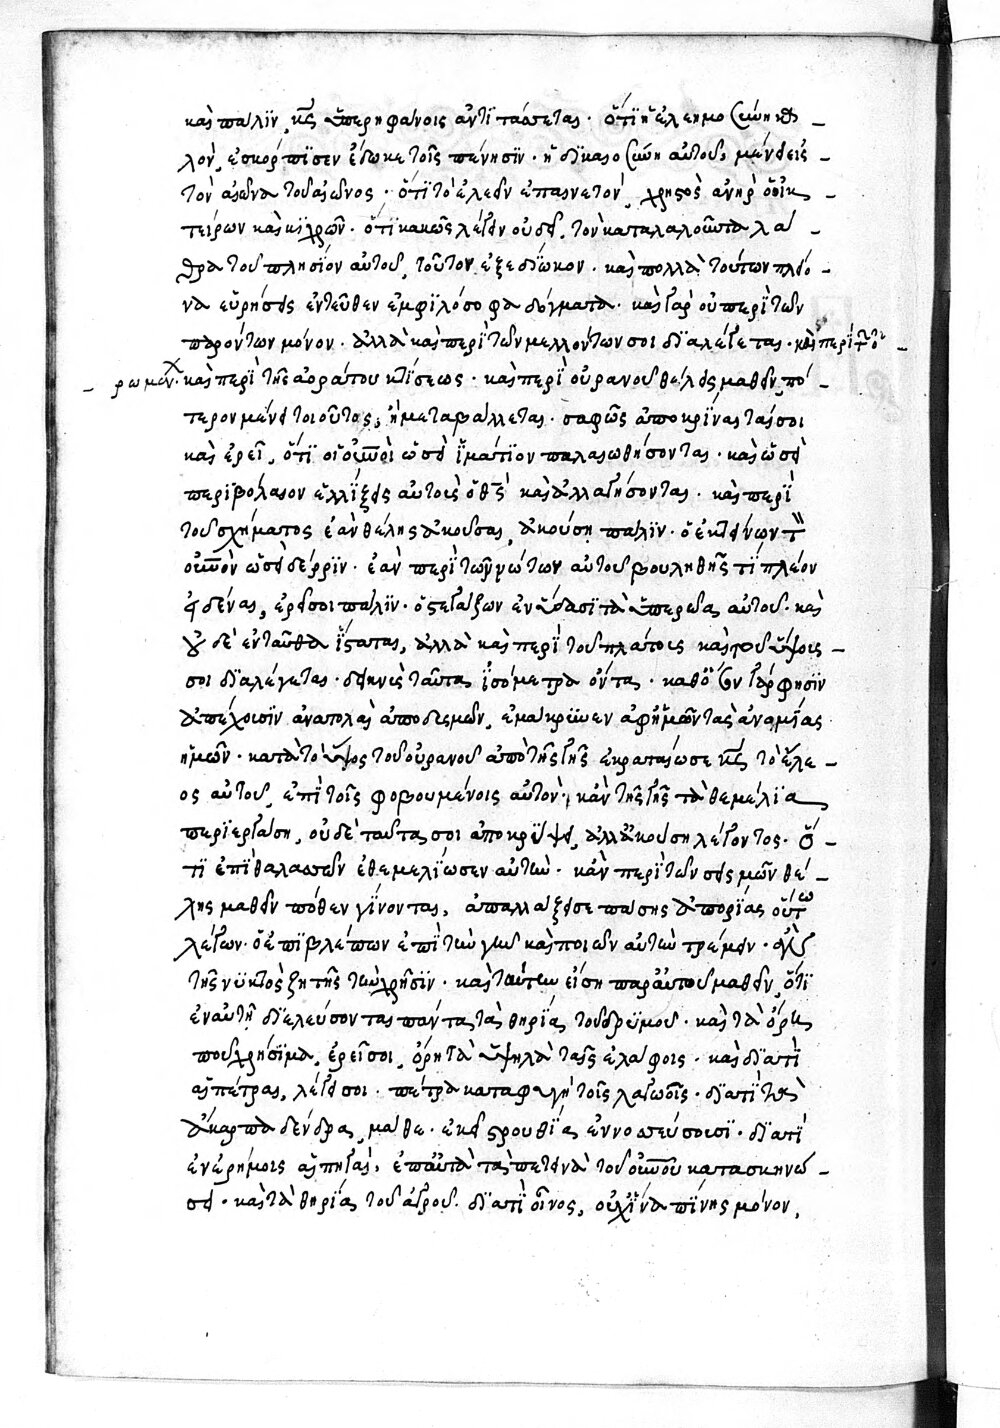 καὶ πάλιν, κς ὑπερηφάνοις ἀντιτάσσεται· ὅτι ἡ ἐλεημοσύνη καλὸν
λον, ἐσκόρπισεν ἔδωκε τοῖς πένησιν· ἡ δικαιοσύνη αὐτοῦ, μένει εἰς
τὸν αἰῶνα τοῦ αἰῶνος· ὅτι τὸ ἐλεεῖν ἐπαινετὸν, χρηστὸς ἀνὴρ ὁ οἰκ
τείρων καὶ κιχρῶν· ὅτι κακῶς λέγειν οὐ δεῖ, τὸν καταλαλοῦντα λά
θρα τοῦ πλησίον αὐτοῦ, τοῦτον ἐξεδίωκον· καὶ πολλὰ τούτων πλείο
να εὑρήσεις ἐντεῦθεν ἐμφιλόσοφα δόγματα· καὶ γὰρ οὐ περὶ τῶν
παρόντων μόνον, ἀλλὰ καὶ περὶ τῶν μελλόντων σοι διαλέγεται· καὶ περὶ τ ὁ
ρωμέν· καὶ περὶ τῆς ἀοράτου κτίσεως· καὶ περὶ οὐρανοῦ θέλεις μαθεῖν, πό
τερον μένει τοιοῦτος, ἢ μεταβάλλεται· σαφῶς ἀποκρίναιταί σοι
καὶ ἐρεῖ, ὅτι οἱ οὐνοὶ ὡσεὶ ἱμάτιον παλαιωθήσονται· καὶ ὡσεὶ
περιβόλαιον ἑλίξεις αὐτοὺς ὁ θς καὶ ἀλλαγήσονται· καὶ περὶ
τοῦ σχήματος ἐὰν θέλης ἀκοῦσαι, ἀκούση πάλιν· ὁ ἐκτείνων τ
οὐνὸν ὡσεὶ δέρριν· ἐὰν περὶ τῶν νώτων αὐτοῦ βουληθῆς τί πλέον
εἰδέναι, ἐρεῖ σοι πάλιν· ὁ στεγάζων ἐν ὕδασι τὰ ὑπερῶα αὐτοῦ· καὶ
οὐ δὲ ἐνταῦθα ἵσταται, ἀλλὰ καὶ περὶ τοῦ πλάτους καὶ τοῦ ὕψους
σοι διαλέγεται· δεικνὺς ταῦτα ἰσόμετρα ὄντα· καθ' ὅσον γάρ φησιν
ἀπέχουσιν ἀνατολαὶ ἀπὸ δυσμῶν, ἐμάκρυνεν ἀφ' ἡμῶν τὰς ἀνομίας
ἡμῶν· κατὰ τὸ ὕψος τοῦ οὐρανοῦ ἀπὸ τῆς γῆς ἐκραταίωσε κς τὸ ἔλε
ος αὐτοῦ, ἐπὶ τοῖς φοβουμένοις αὐτόν· κἂν τῆς γῆς τὰ θεμέλια
περιεργάση, οὐδὲ ταύτας σοι ἀποκρύψει, ἀλλ' ἀκούση λέγοντος· ὅ
τι ἐπὶ θαλασσῶν ἐθεμελίωσεν αὐτήν· κἂν περὶ τῶν σεισμῶν θέ
λης μαθεῖν πόθεν γίνονται, ἀπαλλάξει σε πάσης ἀπορίας οὕτω
λέγων· ὁ ἐπιβλέπων ἐπὶ τὴν γῆν καὶ ποιῶν αὐτὴν τρέμειν·
τῆς νυκτὸς ζητῆς τὴν χρῆσιν· καὶ ταύτην εἴση παρ' αὐτοῦ μαθεῖν, ὅτι
ἐν αὐτῆ διελεύσονται πάντα τὰ θηρία τοῦ δρυμοῦ· καὶ τὰ ὄρη
ποῦ χρήσιμα, ἐρεῖ σοι, ὄρη τὰ ὑψηλὰ ταῖς ἐλάφοις· καὶ διατί
αἱ πέτραι, λέγει σοι· πέτρα καταφυγὴ τοῖς λαγωοῖς· διατί τὰ
ἄκαρπα δένδρα, μάθε· ἐκεῖ στρουθία ἐννοσσεύσουσι· διατί
ἐν ἐρήμοις αἱ πηγαί, ἐπ' αὐτὰ τὰ πετεινὰ τοῦ οὐνοῦ κατασκηνώ
σει· καὶ τὰ θηρία τοῦ ἀγροῦ· διατί οἶνος, οὐχ ἵνα πίνης μόνον,